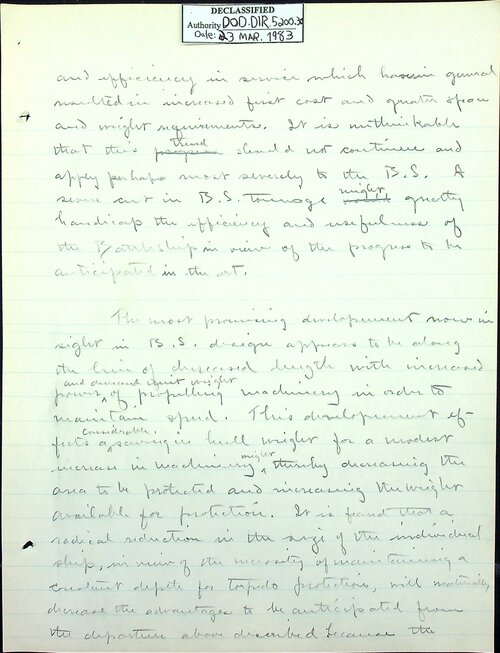 DECLASSIFIED
Authority DOD.DIR.5200.30
Date: 23 MAR. 1983
and efficiency in service which have in general
resulted in increased first cost and greater space
and weight requirements. It is unthinkable
trend
that this progress should not continue and
apply perhaps most severely to the B.S. A
might
severe cut in B.S. tonnage would greatly
handicap the efficiency and usefulness of
the Battleship in view of the progress to be
anticipated in the art.
The most promising development now in
sight in B.S. design appears to be along
the line of decreased length with increased
and decreased unit weight
power of propelling machinery in order to
maintain speed. This development ef-
considerable
fects a saving in hull weight for a modest
weight
increase in machinery thereby decreasing the
area to be protected and increasing the weight
available for protection. It is found that a
radical reduction in the size of the individual
ship, in view of the necessity of maintaining a
constant depth for torpedo protection, will materially
decrease the advantages to be anticipated from
the departure above described because the